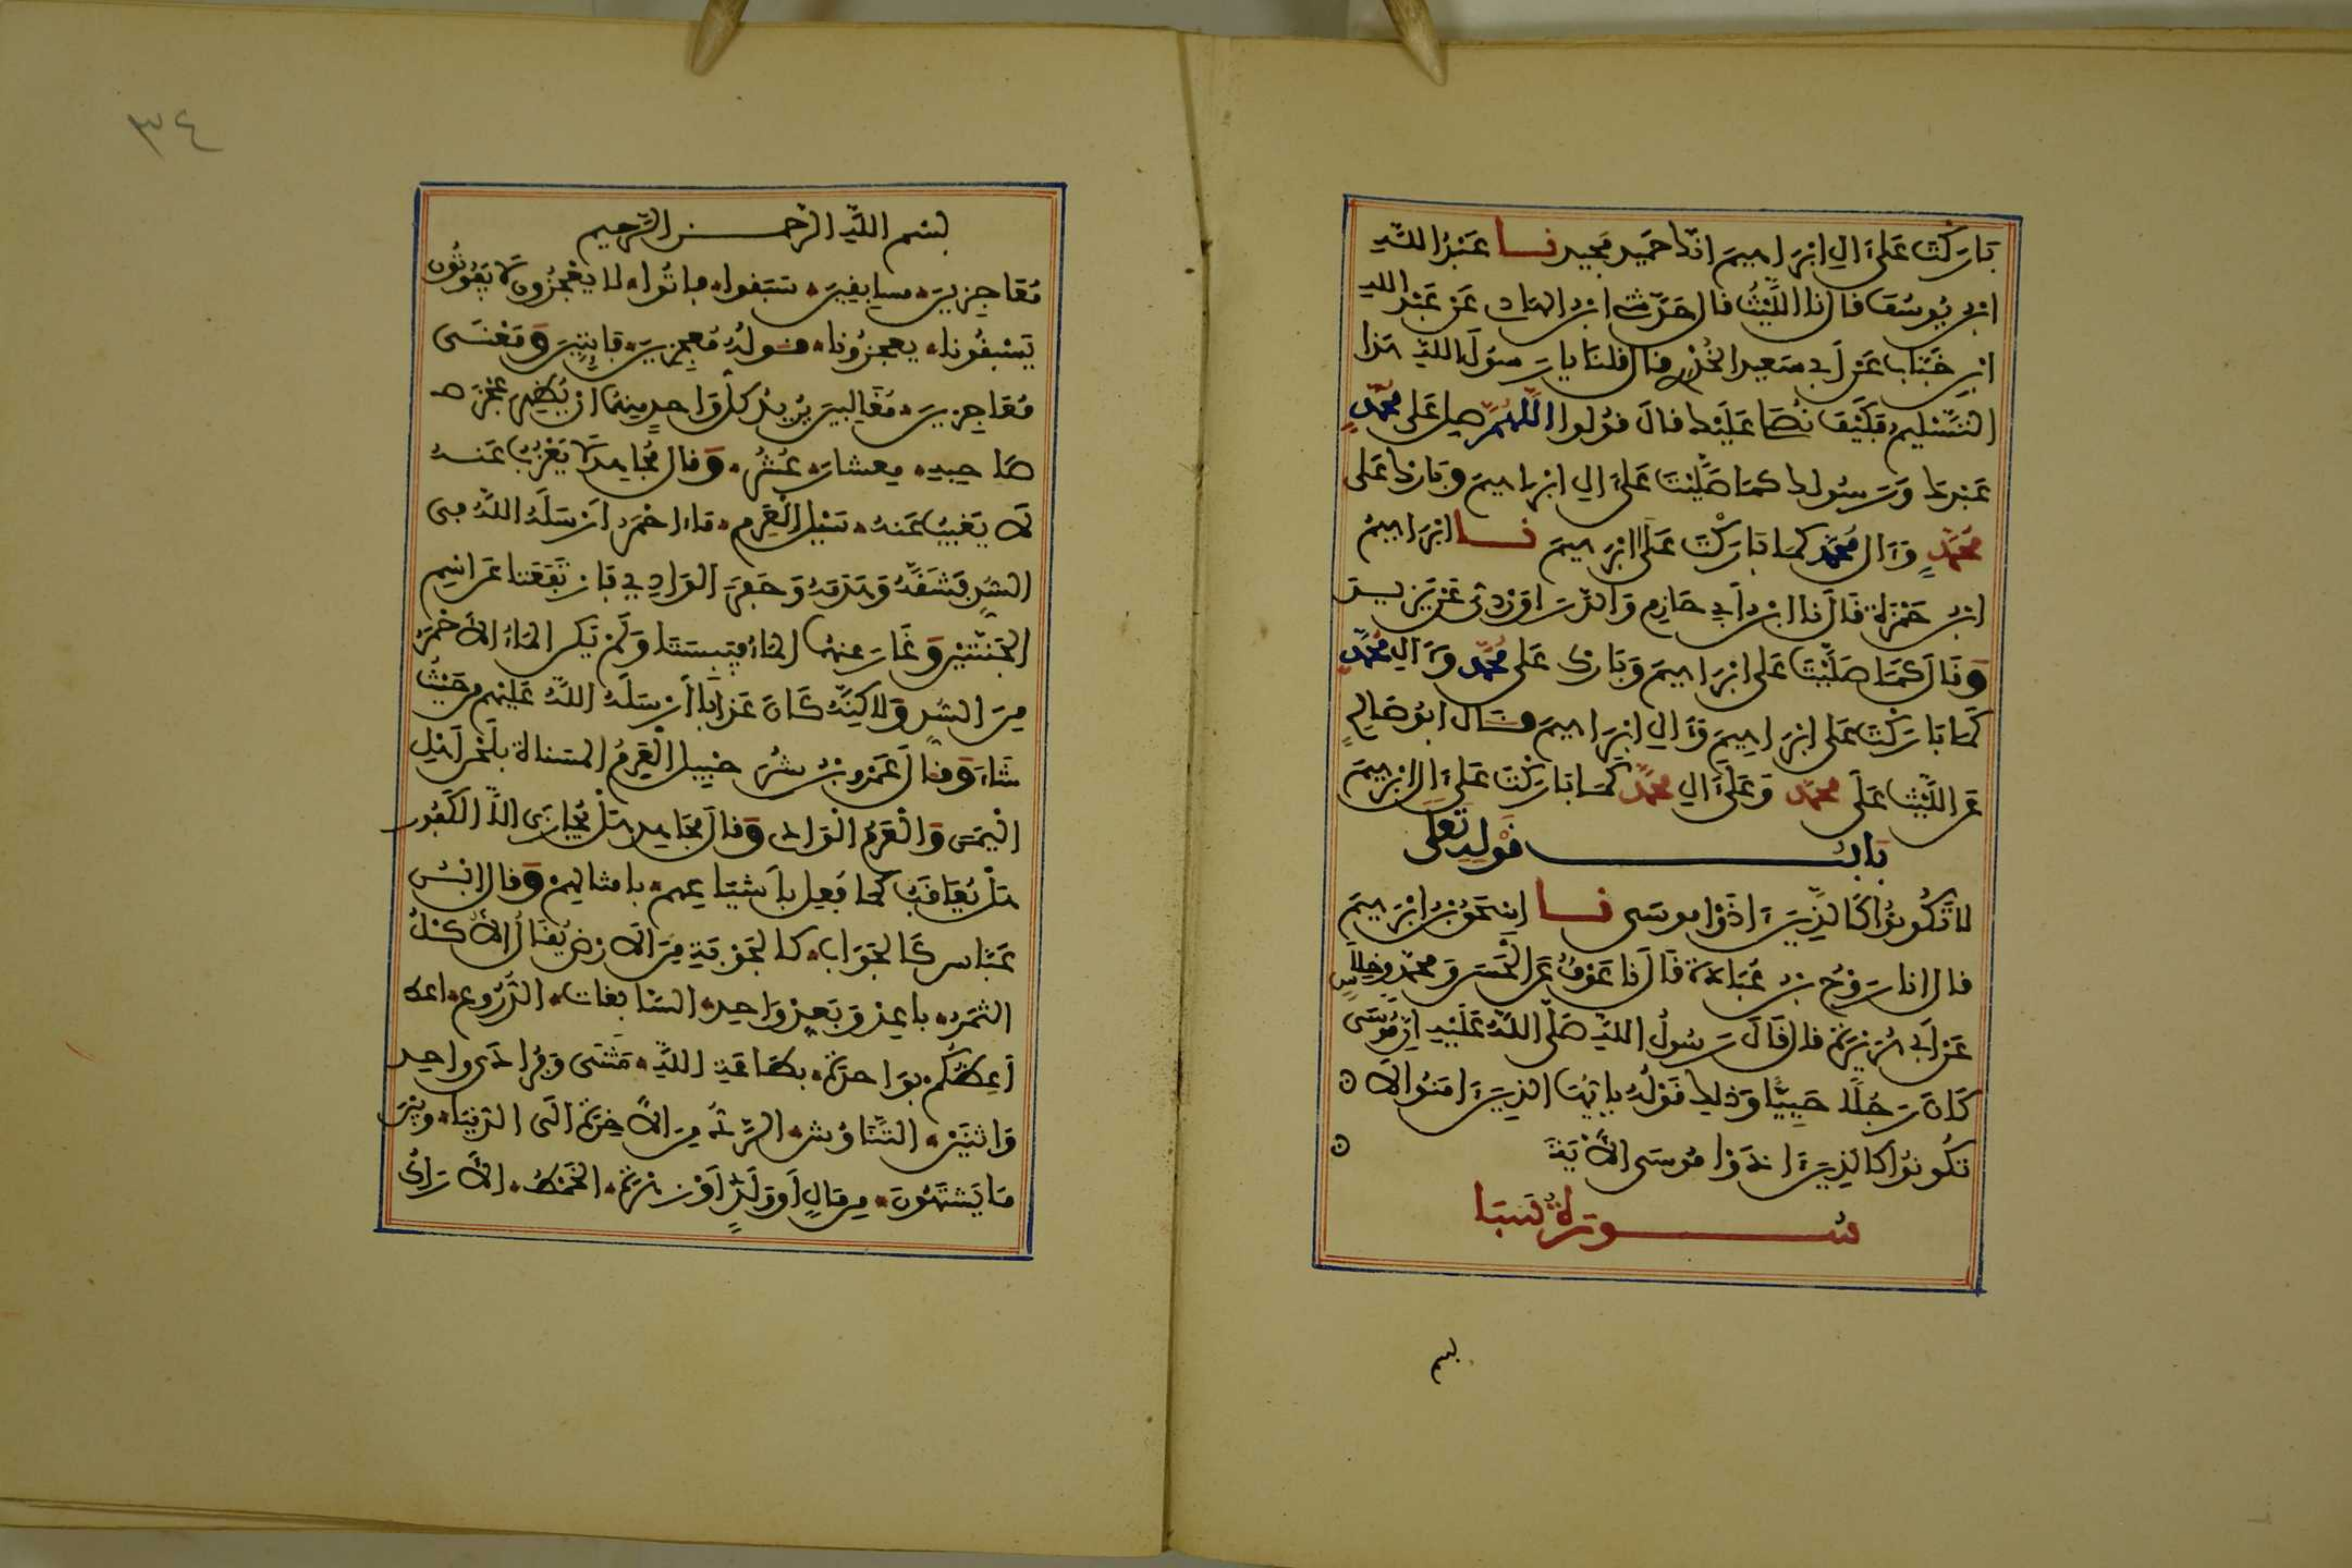 بَارَكْتَ عَلَى ءَالِ ابْرَاهِيمَ انَّكَ حَمِيد مَّجِيد نا عَبْدُ اللَّهِ
ابْنُ يُوسُفَ قال نا اللَّيْثُ قال حَدَّثَنِي ابْنُ الهَادِ عَنْ عَبْدِ اللهِ
ابْنِ خَبَّابٍ عَنْ أَبِي سَعِيد الخُدْرِي قال قلنَا يا رَسُولَ اللهِ هَذا
التَّسْلِيمُ فَكَيْفَ نُصَلِّي عَلَيْكَ قالَ قُولوا اللَّهُمَّ صل عَلى مُحَمَّدٍ
عَبْدِكَ وَرَسُولِكَ كمَا صَلَّيْتَ عَلَى ءَالِ ابْرَاهِيمَ وَبَارِكْ عَلى
مُحَمَّدٍ وَءَالِ مُحَمَّد كمَا بَارَكْتَ عَلَى ابْرَاهِيمَ نا ابْرَاهِيمُ
ابْنُ حَمْزَةَ قَالَ نا ابْنُ أَبِي حَازِمٍ وَالدَّرَاوَرْدِيُّ عَنْ يَزِيدَ
وَقَالَ كَمَا صَلَّيْتَ عَلى ابْرَاهِيمَ وَبَارِكْ عَلى مُحَمَّدٍ وَءَالِ مُحَمَّدٍ
كَمَا بَارَكْتَ عَلى ابْرَاهِيمَ وَءَالِ ابْرَاهِيمَ وقال ابُو صَالِحٍ
عَنِ اللَّيْثِ عَلَى مُحَمَّدٍ وَعَلَى ءَالِ مُحَمَّدٍ كمَا بَارَكْتَ عَلَى ءَالِ ابْرَاهِيمَ
بَابُ قَوْلِهِ تَعَلَى
لا تَكُونُوا كَالَّذِينَ ءَاذَوْا موسَى نا إِسْحَقُ بْنُ ابْرَاهِيمَ
قال انا رَوْحُ بْنُ عُبَادَةَ قَالَ نا عَوْفٌ عَنِ الْحَسَنِ وَمُحَمَّدٍ وَخِلَاسٍ
عَنْ أَبِي هُرَيْرَةَ قال قَالَ رَسُولُ اللَّهِ صَلَّى اللهُ عَلَيْهِ إِنَّ مُوسَى
كَانَ رَجُلًا حَيِيًّا وَذَلِكَ قَوْلُهُ يا أَيُّهَا الذِينَ ءَامَنُوا لاَ
تَكُونُوا كالذِينَ ءَاذَوْا مُوسَى الآيَةَ
سُورَةُ سَبَا
بسم
٣٤
بسْم اللهِ الرَّحْمن الرَّحِيم
مُعَاجِزِينَ مسابِقِينَ سَبَقوا فاتُوا لا يعْجِزُونَ لَا يَفُوتُونَ
يَسْبِقُونا يعجزُونا قولُهُ مُعجِزِينَ فايِتِينَ وَمَعْنَى
مُعَاجِزِينَ مُغَالِبِينَ يُرِيدُ كل وَاحِدٍ مِنهُمَا ان يُظْهِرَ عَجْزَ
صَاحِبِهِ مِعشارَ عُشْرُ وَقال مُجَاهِدٌ لَا يَعْزُبُ عَنهُ
لَا يَغِيبُ عَنهُ سَيْلُ الْعَرِمِ مَاء احْمَرُ أَرْسَلَهُ اللهُ فِى
السُّدِّ فَشَقَّهُ وَهَدَمَهُ وَحَفَرَ الوَادِي فَارْتَفَعَتا عَن
الجَنَّتَيْنِ وَغَارَ عنهُمَا المَاءُ فَيَبِسَتَا وَلَمْ يَكنِ المَاءُ الأَحْمَرُ
مِنَ السُّدِّ وَلَاكِنَّهُ كَانَ عَذَابًا أَرْسَلَهُ اللهُ عَلَيْهِم مِنْ حَيْثُ
شَاءَ وَقال عَمْرُو بْنُ شُرَحْبِيلَ الْعَرِمُ المسنَاةُ بلَحْنِ أَهْلِ
الْيَمَنِ وَالْعَرِمُ الْوَادِى وَقال مُجَاهِدٌ هَلْ يُجَازَى الَّا الْكَفُور
هَلْ يُعَاقَبُ كما فُعِلَ بأَشْيَاعِهِم بأمثَالِهِمْ وَقال ابْنُ
عَبَّاس كَالجَوَابِ كالجَوْبَةِ مِنَ الَارْضِ يُقَالُ الأُكْلُ
الثَّمَرُ بَاعِدْ وَبَعِّدْ وَاحِد السَّابِغات الدُّرُوع
أَعِظُكُم بِوَاحِدَةٍ بطَاعَةِ اللهِ مَثْنَى وَفُرَادَى واحِد
وَاثْنَيْنِ التَّنَاوُش الرَّدُّ مِنَ الآخِرَةِ الَى الدُّنْيَا وبَيْنَ
مَا يَشتَهُونَ مِن مَالٍ أَوْ وَلَدٍ أَوْ زَهْرَةٍ الخَمْطُ الأَرَاكُ